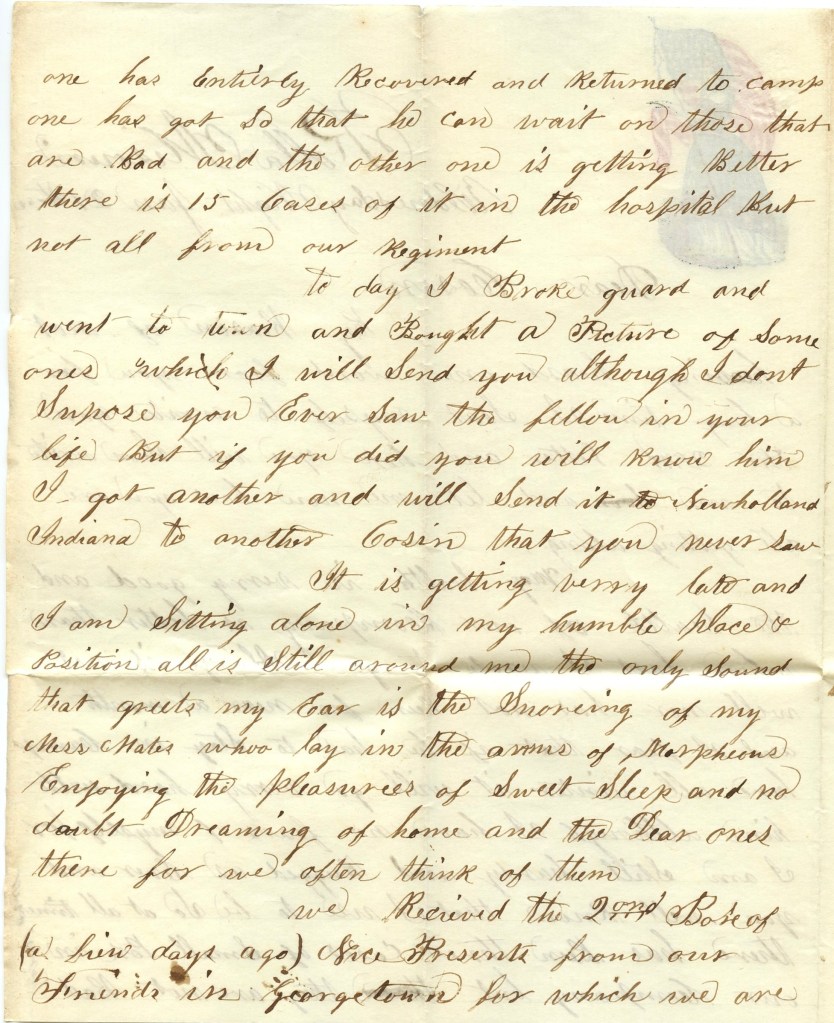 one has Entirly Recovered and Returned to camp
one has got so that he can wait on those that
are Bad and the other one is getting Better
there is 15 Cases of it in the hospital But
not all from our Regiment
to day I Broke guard and
went to town and Bought a Picture of Some
ones which I will Send you although I dont
Supose you Ever Saw the fellow in your
life But if you did you will know him
I got another and will Send it to Newholland
Indiana to another Cosin that you never saw
It is getting verry late and
I am Sitting alone in my humble place &
Position all is Still around me the only Sound
that greets my Ear is the Snoreing of my
Mess Mates whoo lay in the arms of Morpheous
Enjoying the pleasurees of Sweet Sleep and no
doubt Dreaming of home and the Dear ones
there for we often think of them
we Recieved the 2ond Boxe of
(a few days ago) Nice Presents from our
Friends in Georgetown for which we are